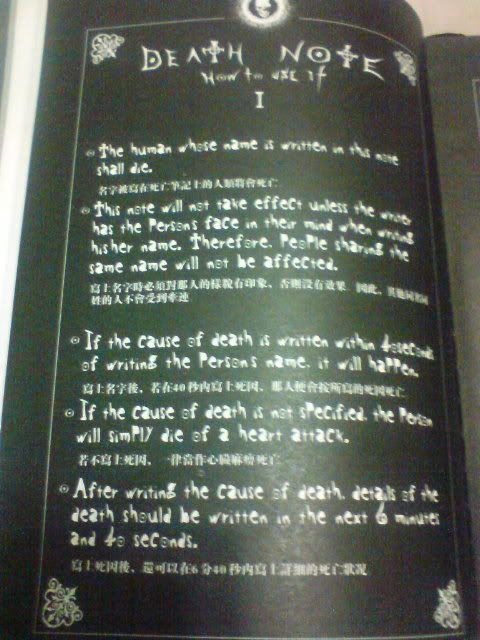 DEATH NOTE
How to use it
I
The human whose name is written in this note
shall die.
名字被寫在死亡筆記上的人類將會死亡
This note will not take effect unless the writer
has the person's face in their mind when writing
his/her name. Therefore, people sharing the
same name will not be affected.
寫上名字時必須對那人的樣貌有印象，否則沒有效果 因此，其他同名同
姓的人不會受到牽連
If the cause of death is written within 40seconds
of writing the person's name, it will happen.
寫上名字後，若在40秒內寫上死因，那人便會按所寫的死因死亡
If the cause of death is not specified, the person
will simply die of a heart attack.
若不寫上死因，一律當作心臟麻痹死亡
After writing the cause of death, details of the
death should be written in the next 6 minutes
and 40 seconds.
寫上死因後，還可以在6分40秒內寫上詳細的死亡狀況